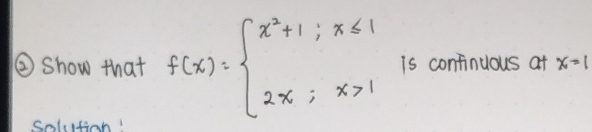 ② Show that f(x) = { x²+1 ; x ≤ 1
2x ; x > 1
is continuous at x=1
Solution: